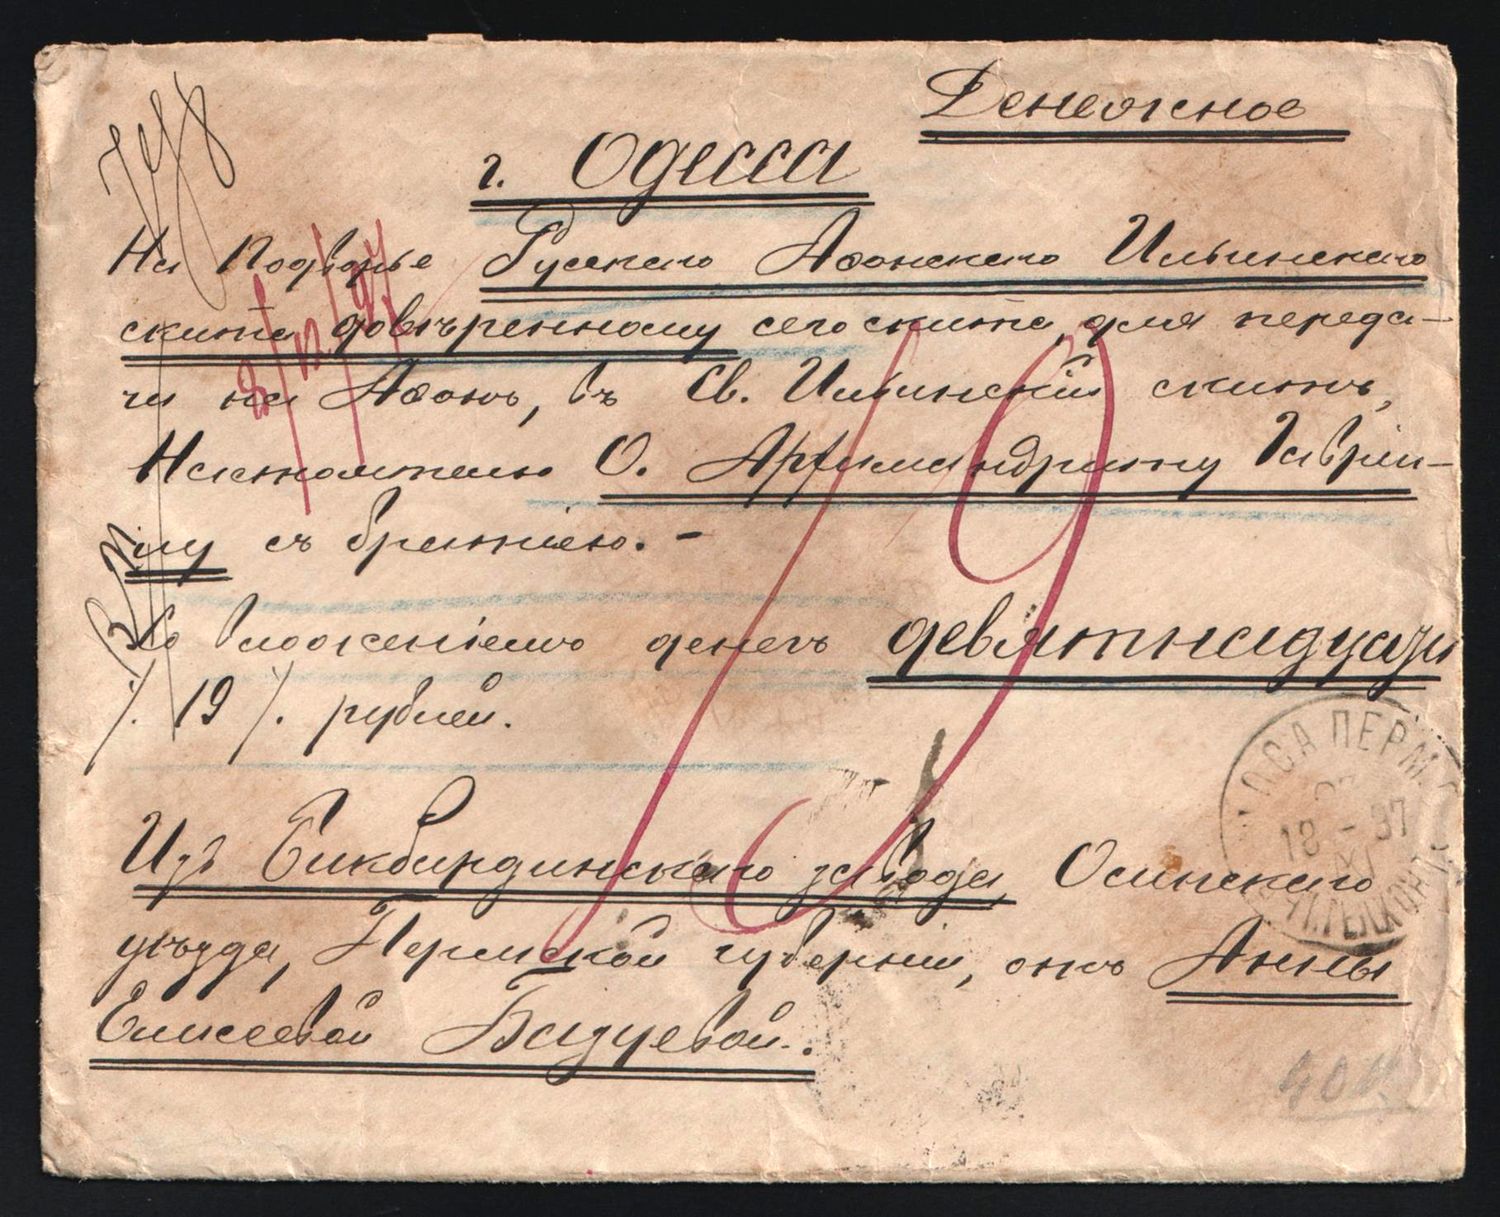 Денежное
г. Одесса
На Подворье Русскаго Афонскаго Ильинскаго
скита довѣренному сего скита, для переда-
чи на Афонъ, въ Св. Ильинскій скитъ,
Настоятелю О. Архимандриту Гаврiи-
лу съ братiею. -
Со вложенiемъ денегъ девятнадцати
/. 19 /. рублей.
Изъ Бикбардинскаго завода, Осинскаго
уѣзда, Пермской губернiи, отъ Анны
Елисеевой
19
8/XII 97
ОСА ПЕРМ. Г.
18 - 97
XI
ПОЧТ. ТЕЛ. КОНТ.
40 к